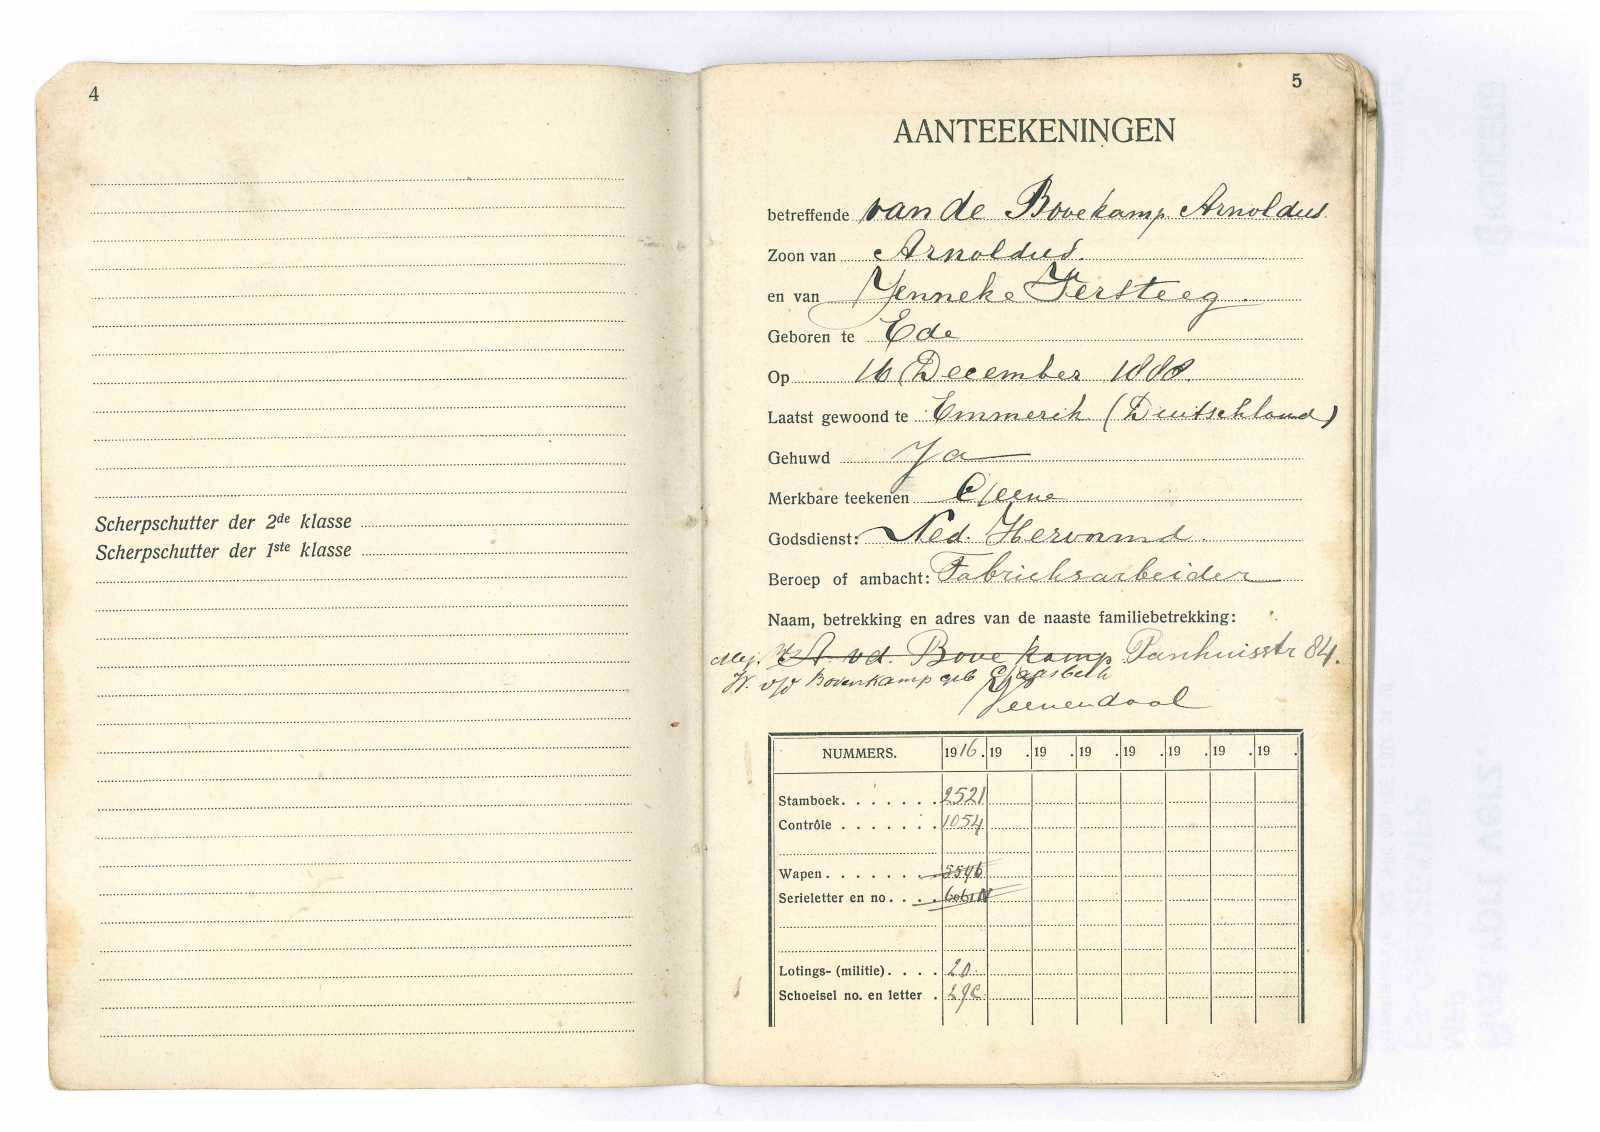 4
Scherpschutter der 2de klasse
Scherpschutter der 1ste klasse
5
AANTEEKENINGEN
betreffende van de Bovekamp Arnoldus
Zoon van Arnoldus.
en van Jenneke Versteeg.
Geboren te Ede
Op 16 December 1888.
Laatst gewoond te Emmerik (Duitschland)
Gehuwd Ja
Merkbare teekenen Geene
Godsdienst: Ned. Hervormd.
Beroep of ambacht: Fabrieksarbeider
Naam, betrekking en adres van de naaste familiebetrekking:
Mej. A. vd. Bovekamp Panhuisstr 84.
W. v/d Bovenkamp geb
Veenendaal
NUMMERS. 1916. 19 . 19 . 19 . 19 . 19 . 19 . 19 .
Stamboek. . . . . . . 2521
Contrôle . . . . . . . 1054
Wapen. . . . . . . 5546
Serieletter en no. . . .
Lotings- (militie). . . . 20.
Schoeisel no. en letter . 29c